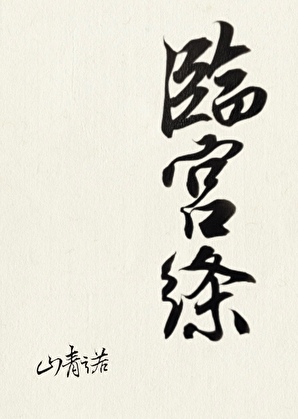 臨宮絳
山青诺